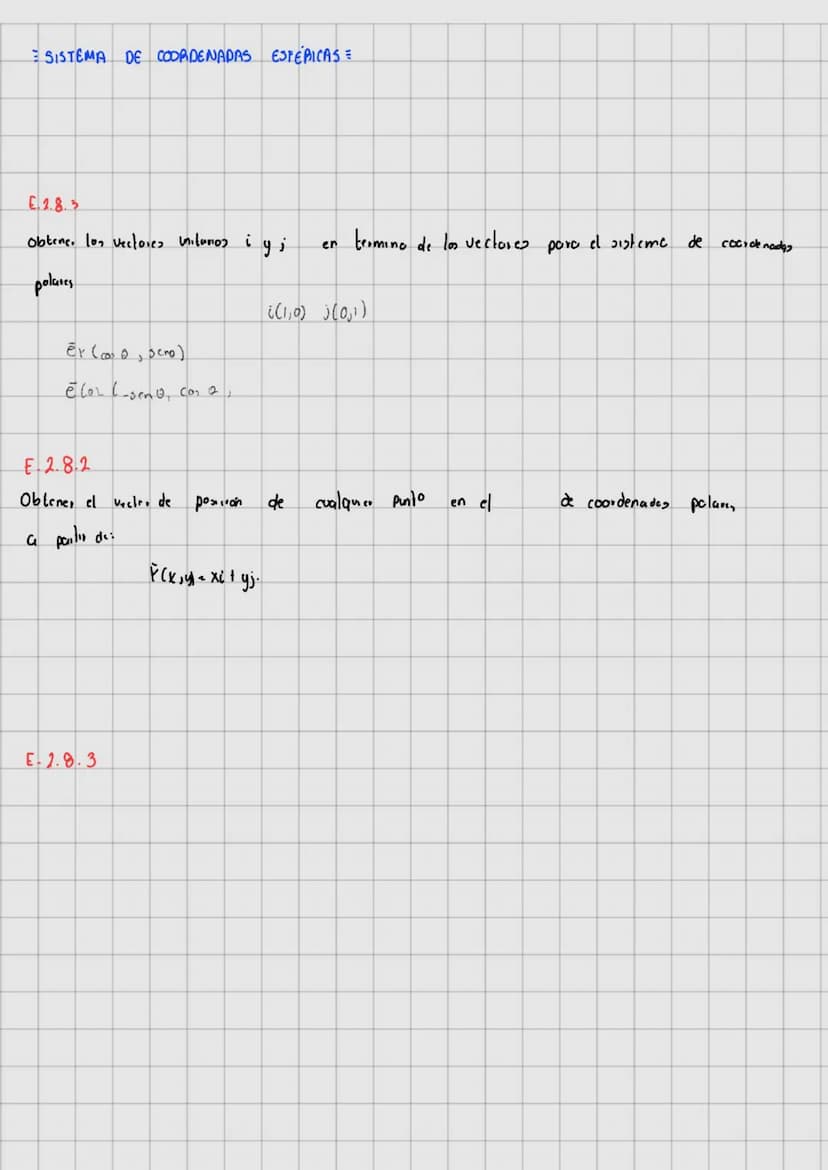 SISTEMA DE COORDENADAS ESFÉRICAS
E.2.8.3
Obtener los vectores unitarios i y j en termino de los vectores para el sisteme de coordenadas
polares
i(1,0) j(0,1)
ēr (cos θ, sen θ)
(-sen θ, cos θ,
E.2.8.2
Obtener el vector de posición de cualquier punto en el de coordenadas polares,
a partir de:
r̄(x,y) = xi + yj.
E.2.8.3